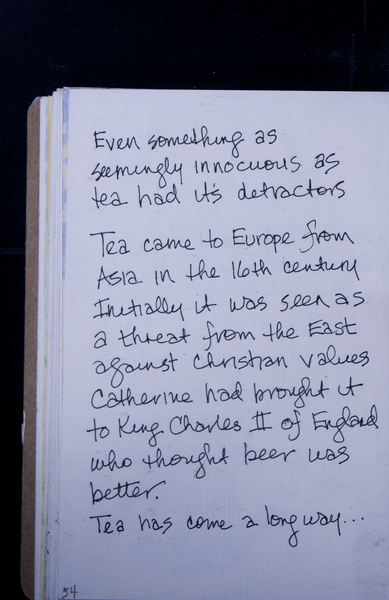 Even something as
seemingly innocuous as
tea had it's detractors
Tea came to Europe from
Asia in the 16th century
Initially it was seen as
a threat from the East
against Christian values
Catherine had brought it
to King Charles II of England
who thought beer was
better.
Tea has come a long way...
54